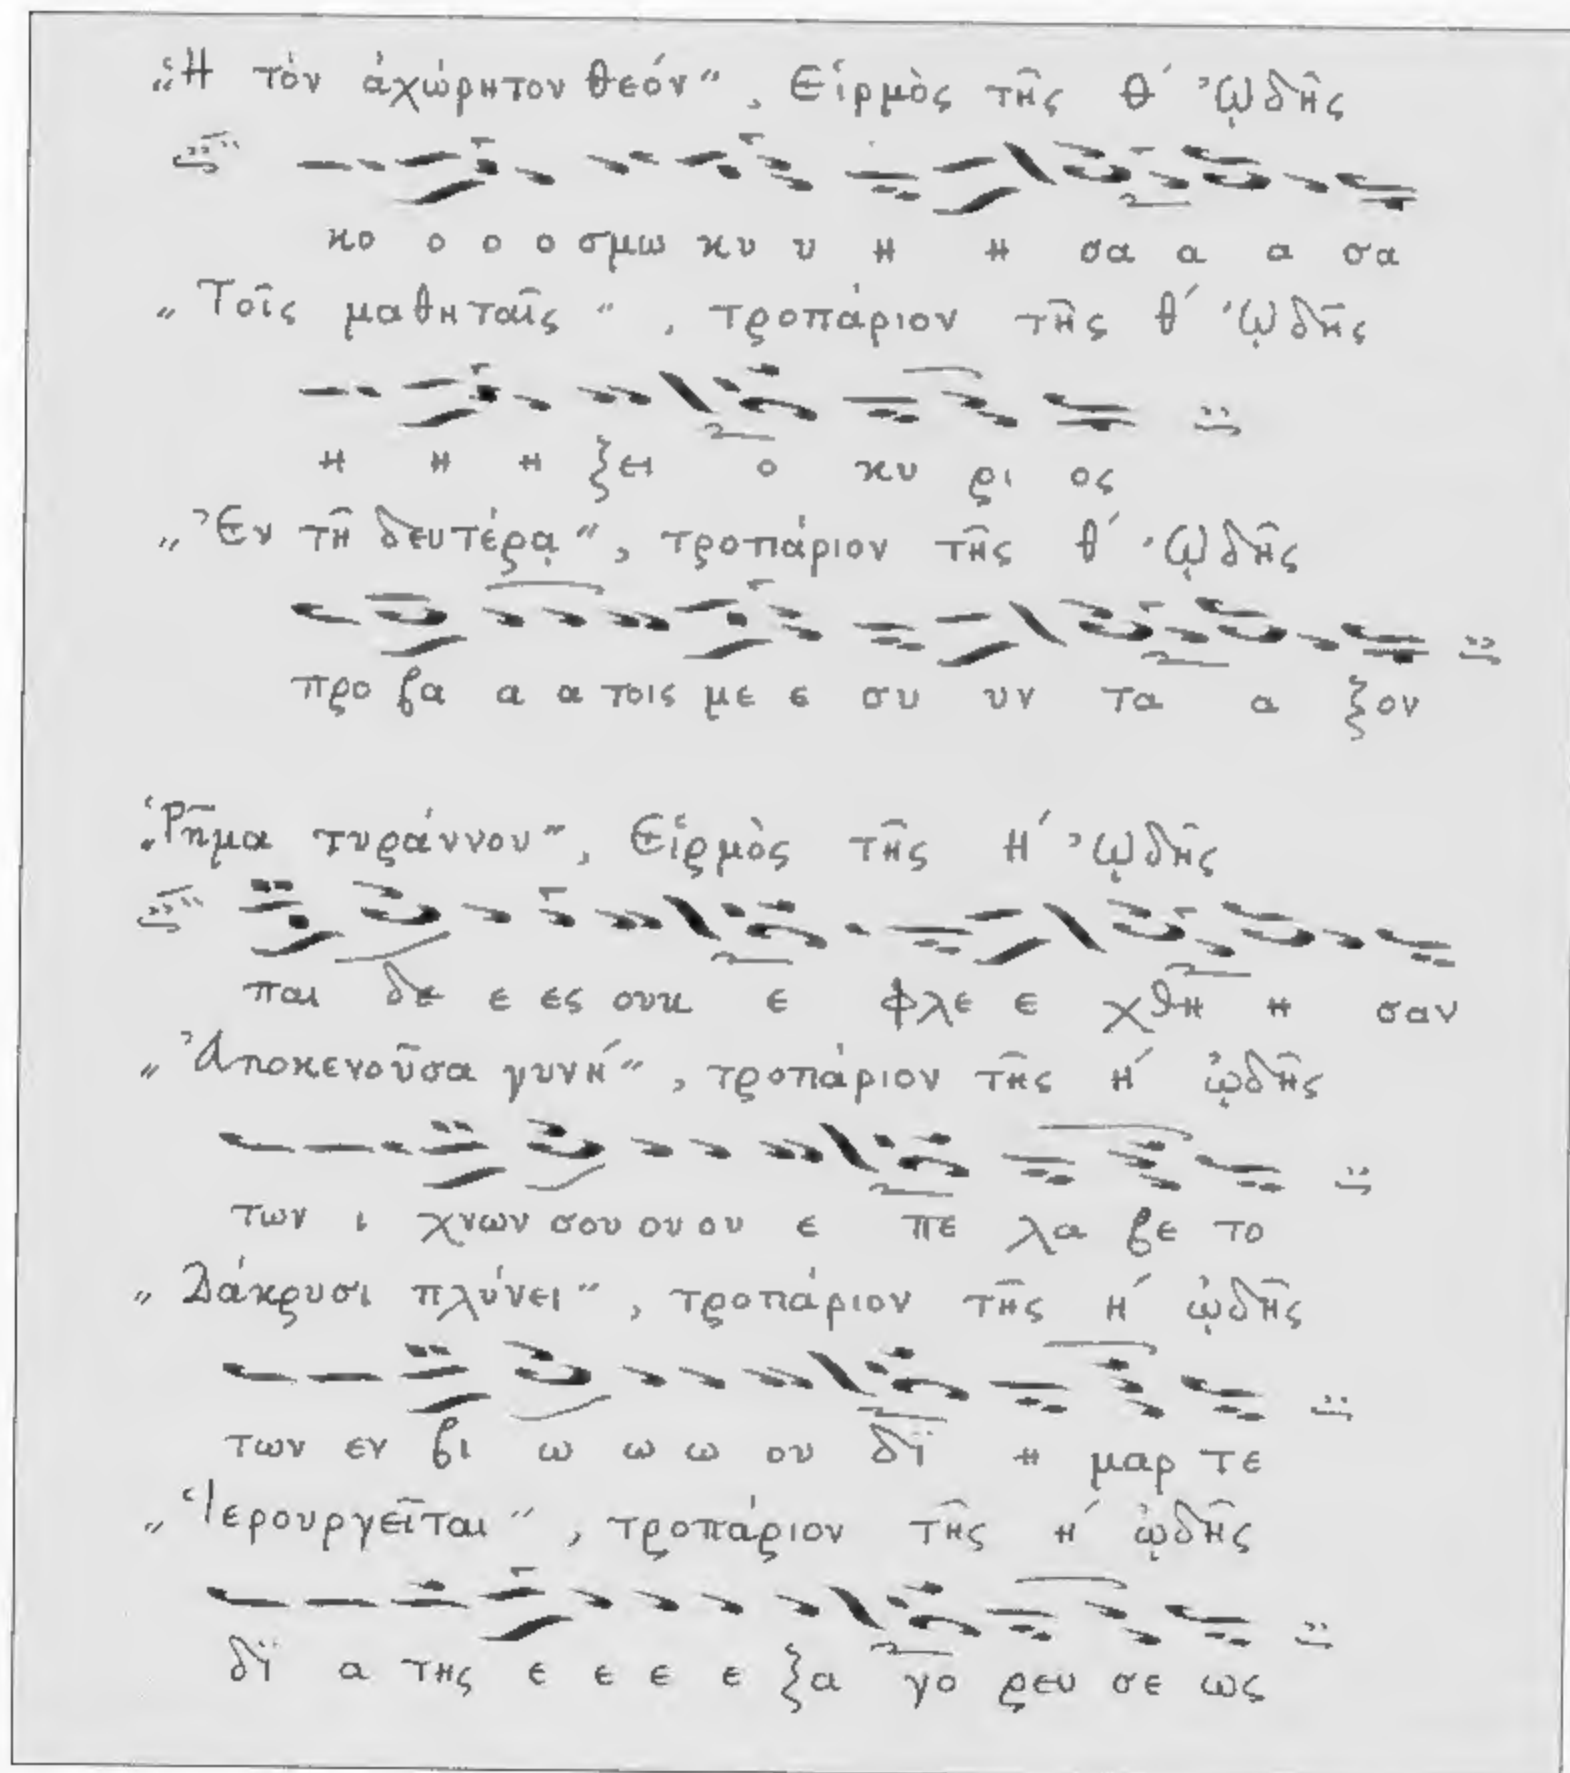 „Ἡ τὸν ἀχώρητον Θεόν“, Εἱρμὸς τῆς θ´ ᾨδῆς
κο ο ο ο σμω κυ υ η η σα α α σα
„Τοῖς μαθηταῖς“, τροπάριον τῆς θ´ ᾨδῆς
η η η ξει ο κυ ρι ος
„Ἐν τῇ δευτέρᾳ“, τροπάριον τῆς θ´ ᾨδῆς
προ βα α α τοις με ε συ υν τα α ξον
„Ῥῆμα τυράννου“, Εἱρμὸς τῆς Η´ ᾨδῆς
παι δε ε ες ουκ ε φλε ε χθη η σαν
„Ἀποκενοῦσα γυνή“, τροπάριον τῆς η´ ᾠδῆς
των ι χνων σου ου ου ε πε λα βε το
„Δάκρυσι πλύνει“, τροπάριον τῆς η´ ᾠδῆς
των εν βι ω ω ω ου δϊ η μαρ τε
„Ἱερουργεῖται“, τροπάριον τῆς η´ ᾠδῆς
δϊ α της ε ε ε ε ξα γο ρευ σε ως